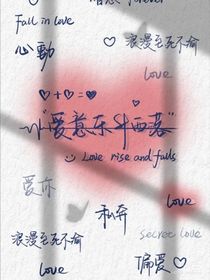 forever
Fall in love
心動
♡ 浪漫至死不渝
love
♡ + ♡ = ♥
"爱意东升西落"
Love rise and falls
爱你
love
私奔
浪漫至死不渝
secret love
love
偏爱 ♡